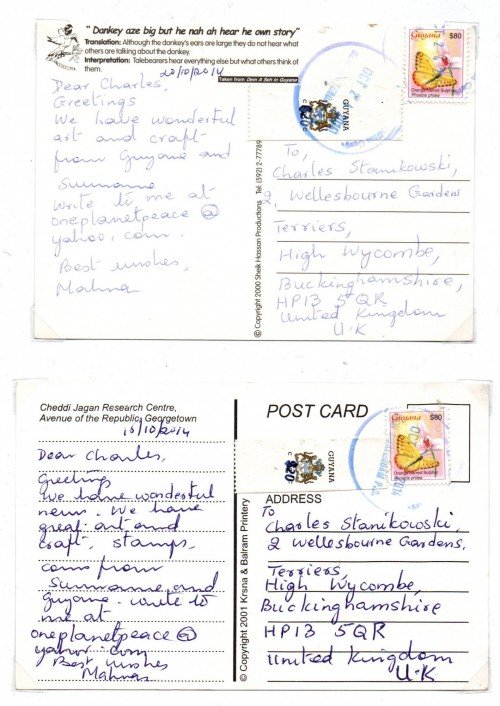 "Dankey aze big but he nah ah hear he own story"
Translation: Although the donkey's ears are large they do not hear what
others are talking about the donkey.
Interpretation: Talebearers hear everything else but what others think of
them.
Taken from: Dem A Seh In Guyana
20/10/2014
Dear Charles,
Greetings
We have wonderful
art and craft
from Guyana and
Suriname
write to me at
oneplanetpeace@
yahoo.com.
Best wishes,
© Copyright 2000 Sheik Hassan Productions Tel: (592) 2-77789
GUYANA
C $20
Guyana
$80
Orange-barred Sulphur
Phoebis philea
To,
Charles Stanikowski,
2, Wellesbourne Gardens
Terriers,
High Wycombe,
Buckinghamshire,
HP13 5QR
United Kingdom
U.K
Cheddi Jagan Research Centre,
Avenue of the Republic, Georgetown
10/10/2014
Dear Charles,
Greetings
We have wonderful
news. We have
great art and
craft, stamps,
coins from
Suriname and
Guyana. write to
me at
oneplanetpeace@
yahoo.com
Best wishes
© Copyright 2001 Krsna & Balram Printery
POST CARD
GUYANA
C $20
Guyana
$80
Orange-barred Sulphur
Phoebis philea
ADDRESS
To
Charles Stanikowski,
2 Wellesbourne Gardens.
Terriers,
High Wycombe,
Buckinghamshire
HP13 5QR
United Kingdom
U.K